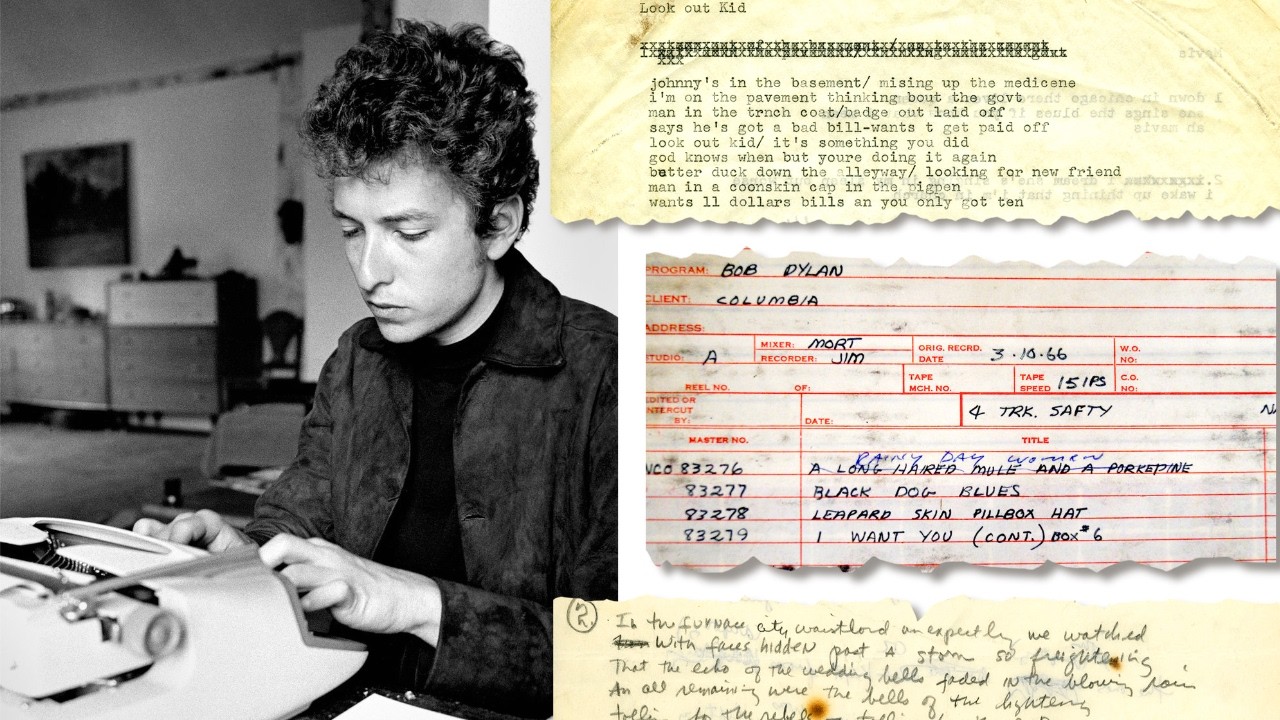 Look out Kid
johnny's in the basement/ mising up the medicene
i'm on the pavement thinking bout the govt
man in the trnch coat/badge out laid off
says he's got a bad bill-wants t get paid off
look out kid/ it's something you did
god knows when but youre doing it again
better duck down the alleyway/ looking for new friend
man in a coonskin cap in the bigpen
wants ll dollars bills an you only got ten
PROGRAM: BOB DYLAN
CLIENT: COLUMBIA
ADDRESS:
STUDIO: A MIXER: MORT ORIG. RECRD. DATE 3·10·66 W.O. NO:
RECORDER: JIM
REEL NO. OF: TAPE MCH. NO. TAPE SPEED 15 IPS C.O. NO:
EDITED OR INTERCUT BY: DATE: 4 TRK. SAFTY
MASTER NO. TITLE
RAINY DAY WOMEN
NCO 83276 A LONG HAIRED MULE AND A PORKEPINE
83277 BLACK DOG BLUES
83278 LEAPARD SKIN PILLBOX HAT
83279 I WANT YOU (CONT.) BOX #6
2
In the furnace city waistlord unexpectly we watched
With faces hidden past a storm so freightening
That the echo of the wedding bells faded in the blowing rain
An all remaining were the bells of the lightening
tolling for the rebel